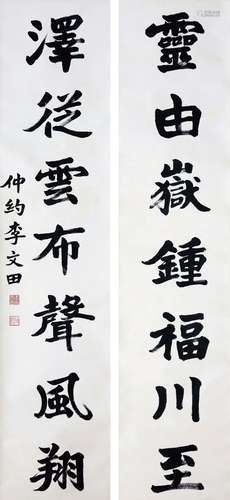 靈由嶽鍾福川至
澤從雲布聲風翔
仲約李文田